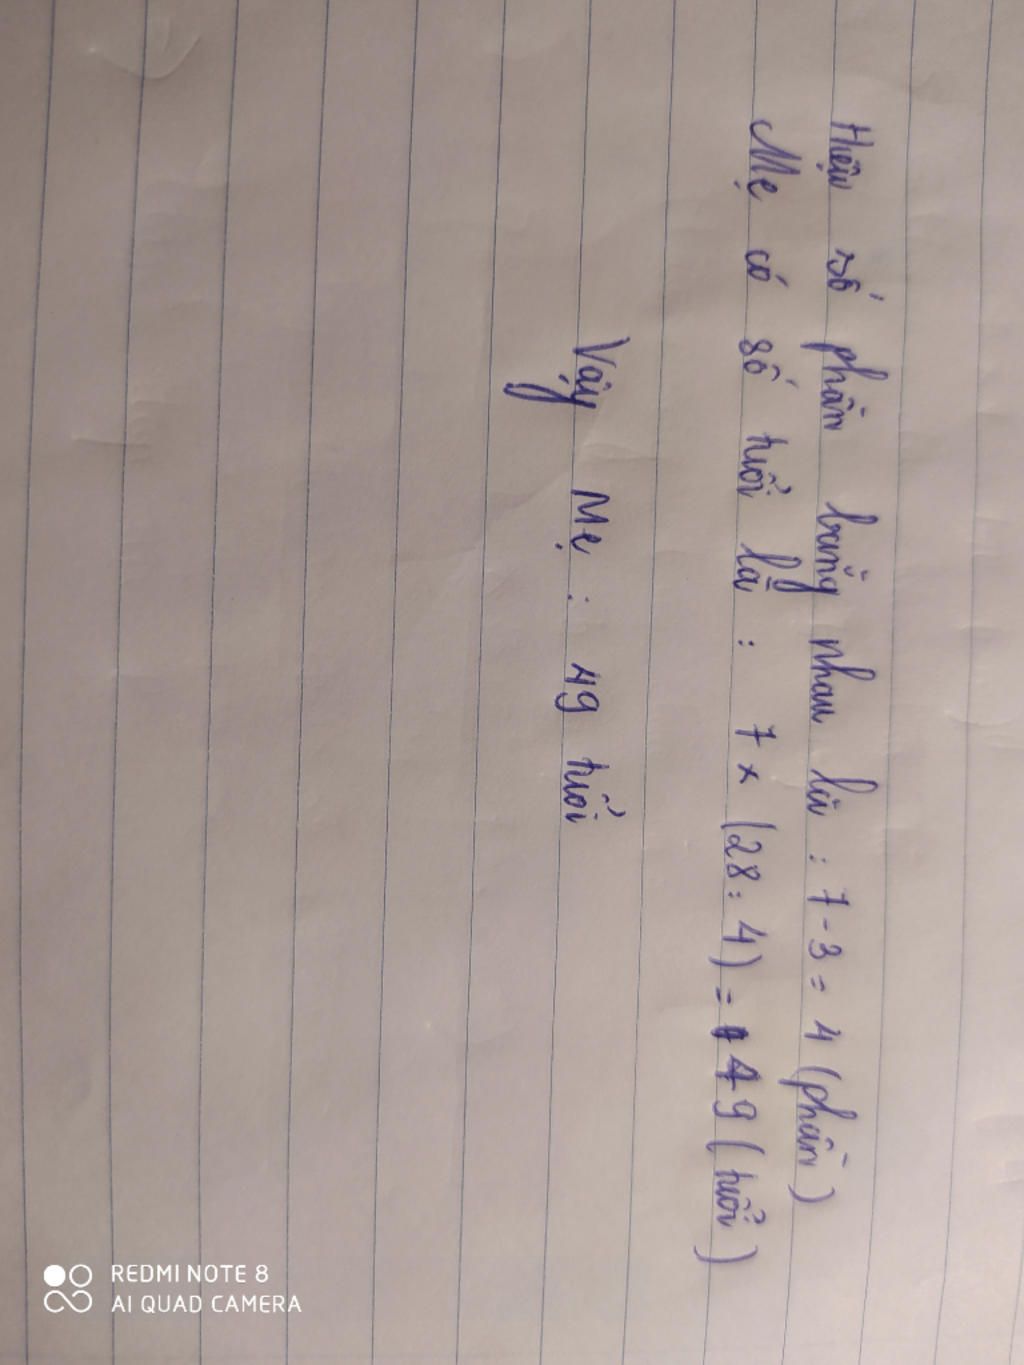 Hiệu số phần bằng nhau là : 7 - 3 = 4 (phần)
Mẹ có số tuổi là : 7 x (28 : 4) = 49 (tuổi)
Vậy Mẹ : 49 tuổi
REDMI NOTE 8
AI QUAD CAMERA